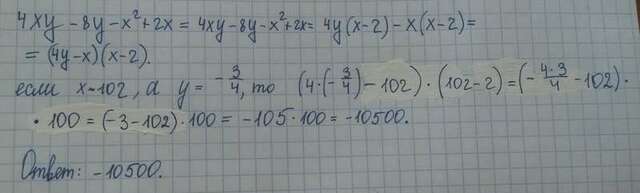 4xy - 8y - x² + 2x = 4xy - 8y - x² + 2x = 4y(x-2) - x(x-2) =
= (4y-x)(x-2).
если x=102, а y = -3/4, то (4·(-3/4) - 102)·(102-2) = (-4·3/4 - 102)·
·100 = (-3-102)·100 = -105·100 = -10500.
Ответ: -10500.